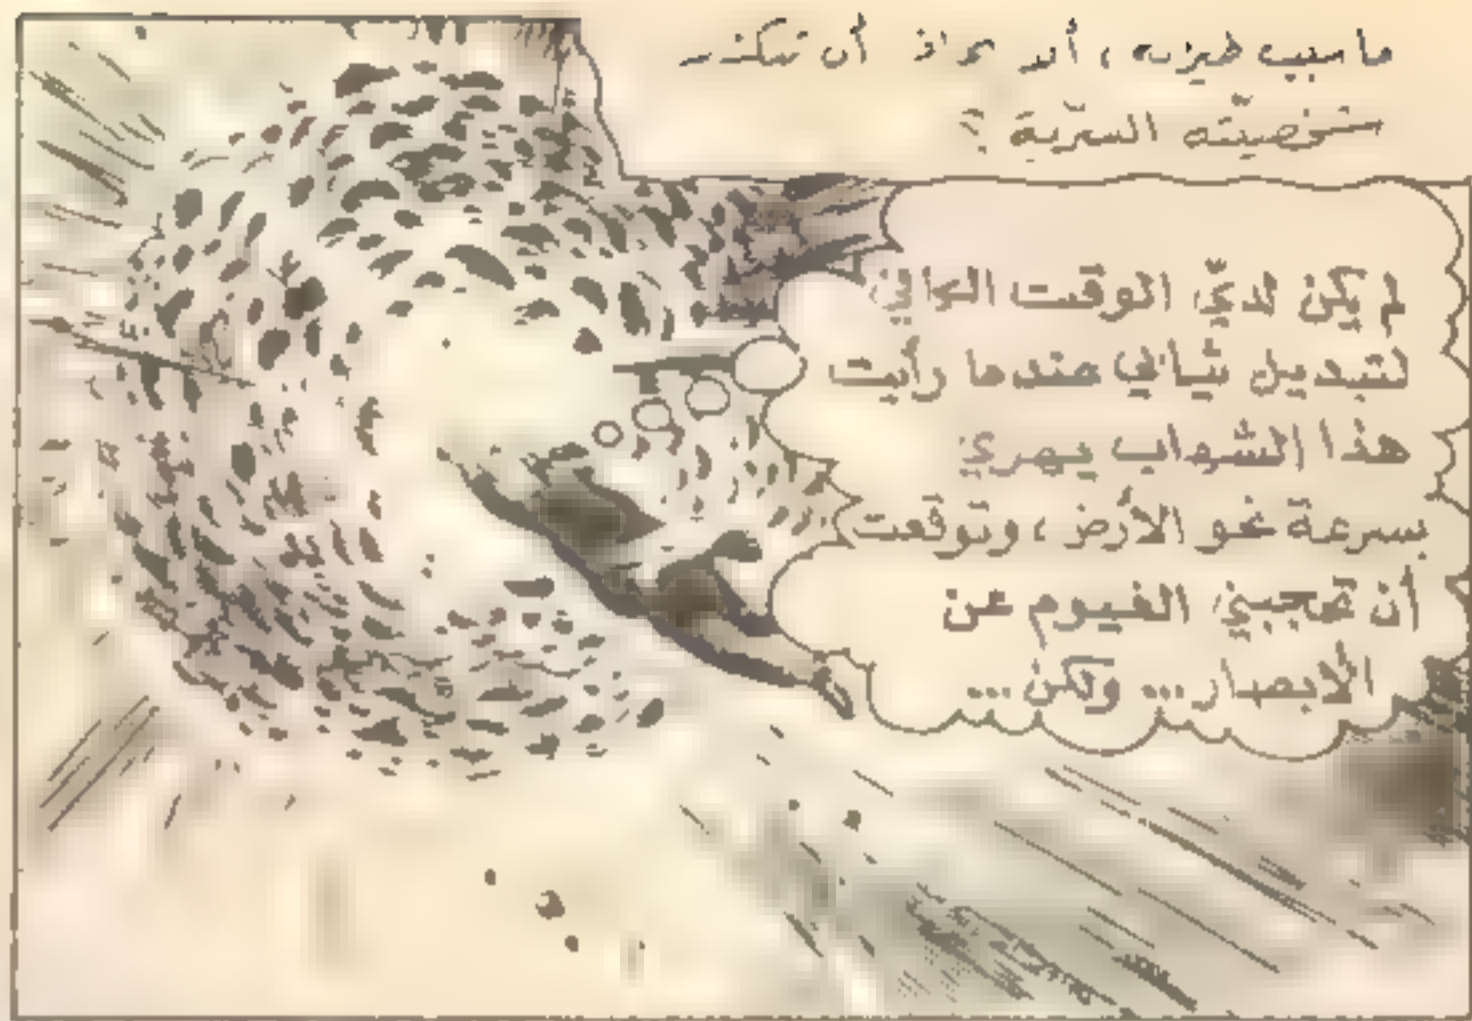 ما سبب ، أن
شخصيّته السرّية ؟
لم يكن لديّ الوقت الكافي
لتبديل ثيابي عندما رأيت
هذا الشهاب يهوي
بسرعة نحو الأرض ، وتوقعت
أن تحجبني الغيوم عن
الأبصار... ولكن ...